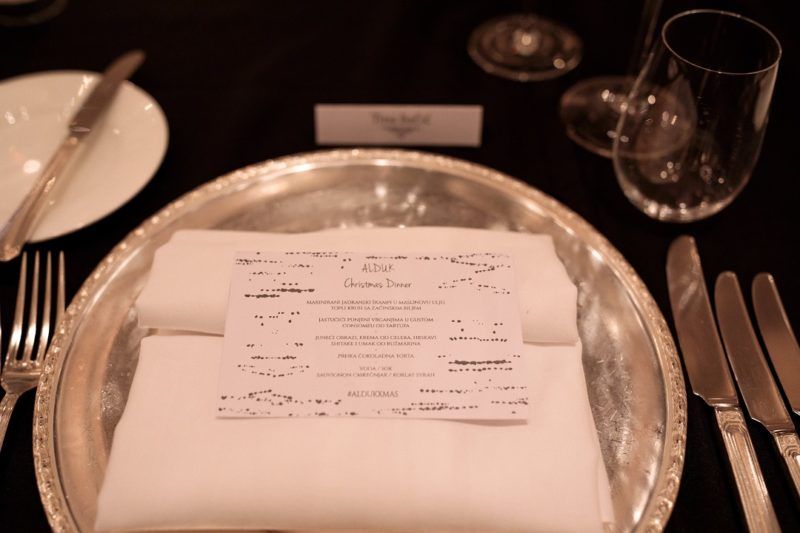 ALDUK
Christmas Dinner
MARINIRANI JADRANSKI ŠKAMPI U MASLINOVU ULJU
TOPLI KRUH SA ZAČINSKIM BILJEM
JASTUČIĆI PUNJENI VRGANJIMA U GUSTOM
CONSOMEU OD TARTUFA
JUNEĆI OBRAZI, KREMA OD CELERA, HRSKAVI
SHITAKE I UMAK OD RUŽMARINA
PRHKA ČOKOLADNA TORTA
VODA / SOK
SAUVIGNON / KORLAT SYRAH
#ALDUKXMAS